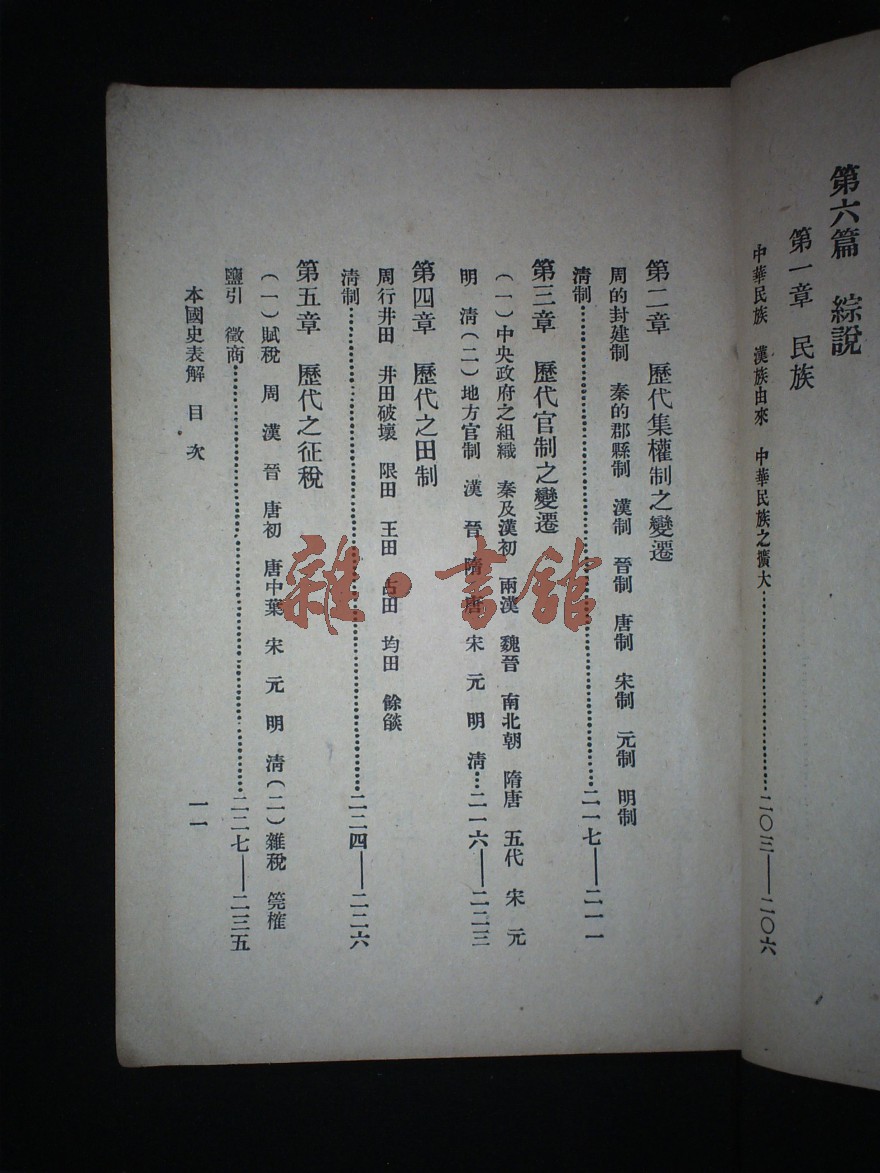 第六篇　綜說
第一章　民族
中華民族　漢族由來　中華民族之擴大…………………二〇三——二〇六
第二章　歷代集權制之變遷
周的封建制　秦的郡縣制　漢制　晉制　唐制　宋制　元制　明制
清制……………………………………二一七——二一一
第三章　歷代官制之變遷
（一）中央政府之組織　秦及漢初　兩漢　魏晉　南北朝　隋唐　五代　宋　元
明　清（二）地方官制　漢　晉　隋唐　宋　元　明　清…二一六——二二三
第四章　歷代之田制
周行井田　井田破壞　限田　王田　占田　均田　餘燄
清制……………………………………二二四——二二六
第五章　歷代之征稅
（一）賦稅　周　漢　晉　唐初　唐中葉　宋　元　明　清（二）雜稅　筦榷
鹽引　徵商………………………………二二七——二三五
本國史表解　目次
一一
雜·書館